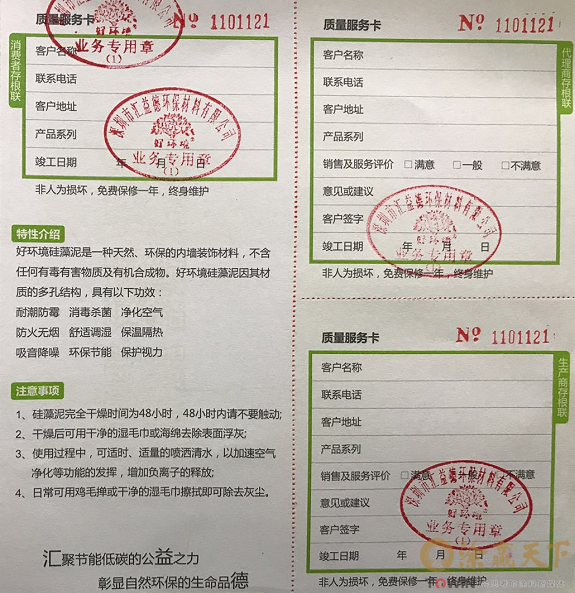 质量服务卡 Nº 1101121
消费者存根联
客户名称
联系电话
客户地址
产品系列
竣工日期 年 月 日
非人为损坏，免费保修一年，终身维护
好环境
业务专用章
(1)
深圳市汇益德环保材料有限公司
好环境
业务专用章
(1)
特性介绍
好环境硅藻泥是一种天然、环保的内墙装饰材料，不含
任何有毒有害物质及有机合成物。好环境硅藻泥因其材
质的多孔结构，具有以下功效：
耐潮防霉 消毒杀菌 净化空气
防火无烟 舒适调湿 保温隔热
吸音降噪 环保节能 保护视力
注意事项
1、硅藻泥完全干燥时间为48小时，48小时内请不要触动;
2、干燥后可用干净的湿毛巾或海绵去除表面浮灰;
3、使用过程中，可适时、适量的喷洒清水，以加速空气
净化等功能的发挥，增加负离子的释放;
4、日常可用鸡毛掸或干净的湿毛巾擦拭即可除去灰尘。
汇聚节能低碳的公益之力
彰显自然环保的生命品德
质量服务卡 Nº 1101121
代理商存根联
客户名称
联系电话
客户地址
产品系列
销售及服务评价 □满意 □一般 □不满意
意见或建议
客户签字
竣工日期 年 月 日
非人为损坏，免费保修一年，终身维护
深圳市汇益德环保材料有限公司
好环境
业务专用章
(1)
质量服务卡 Nº 1101121
生产商存根联
客户名称
联系电话
客户地址
产品系列
销售及服务评价 □满意 □一般 □不满意
意见或建议
客户签字
竣工日期 年 月 日
非人为损坏，免费保修一年，终身维护
深圳市汇益德环保材料有限公司
好环境
业务专用章
(1)